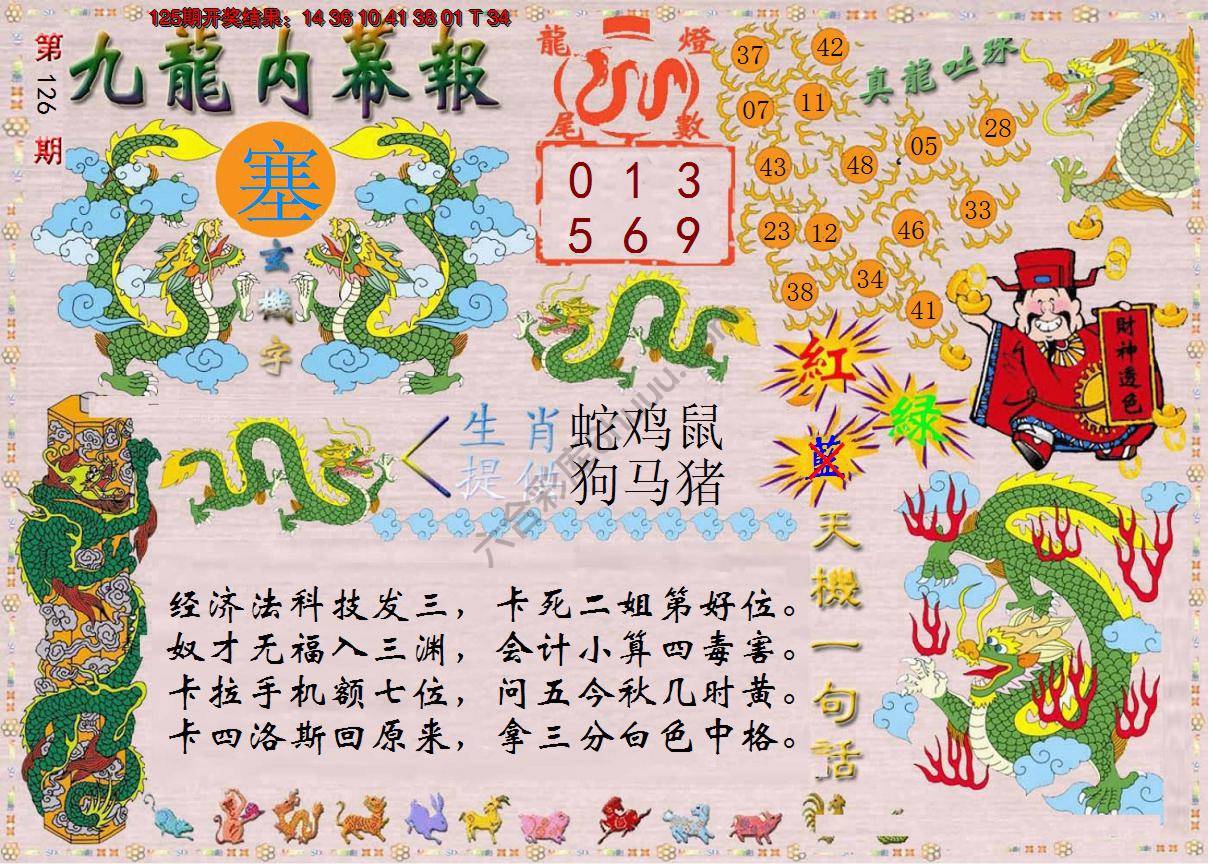 125期开奖结果：14 36 10 41 38 01 T 34
第126期
九龍内幕報
塞
玄機字
龍燈
尾數
0 1 3
5 6 9
真龍吐珠
37 42
07 11
43 48 05 28
23 12 46 33
38 34 41
財神透色
紅
綠
藍
生肖 蛇鸡鼠
提供 狗马猪
天機一句話
经济法科技发三，卡死二姐第好位。
奴才无福入三渊，会计小算四毒害。
卡拉手机额七位，问五今秋几时黄。
卡四洛斯回原来，拿三分白色中格。